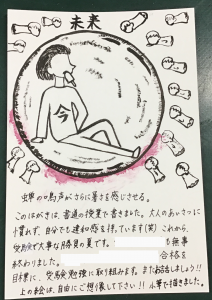 未来
今
蝉の鳴声がさらに暑さを感じさせる。
このはがきは、書道の授業で書きました。大人のあいさつに
慣れず、自分でも違和感を持っています(笑) これから、
受験で大事な勝負の夏です。 も無事
終わりました。 合格を
目標に、受験勉強に取り組みます。またお話しましょう!!
上の絵は、自由にご想像して下さい!! 小筆で描きました。